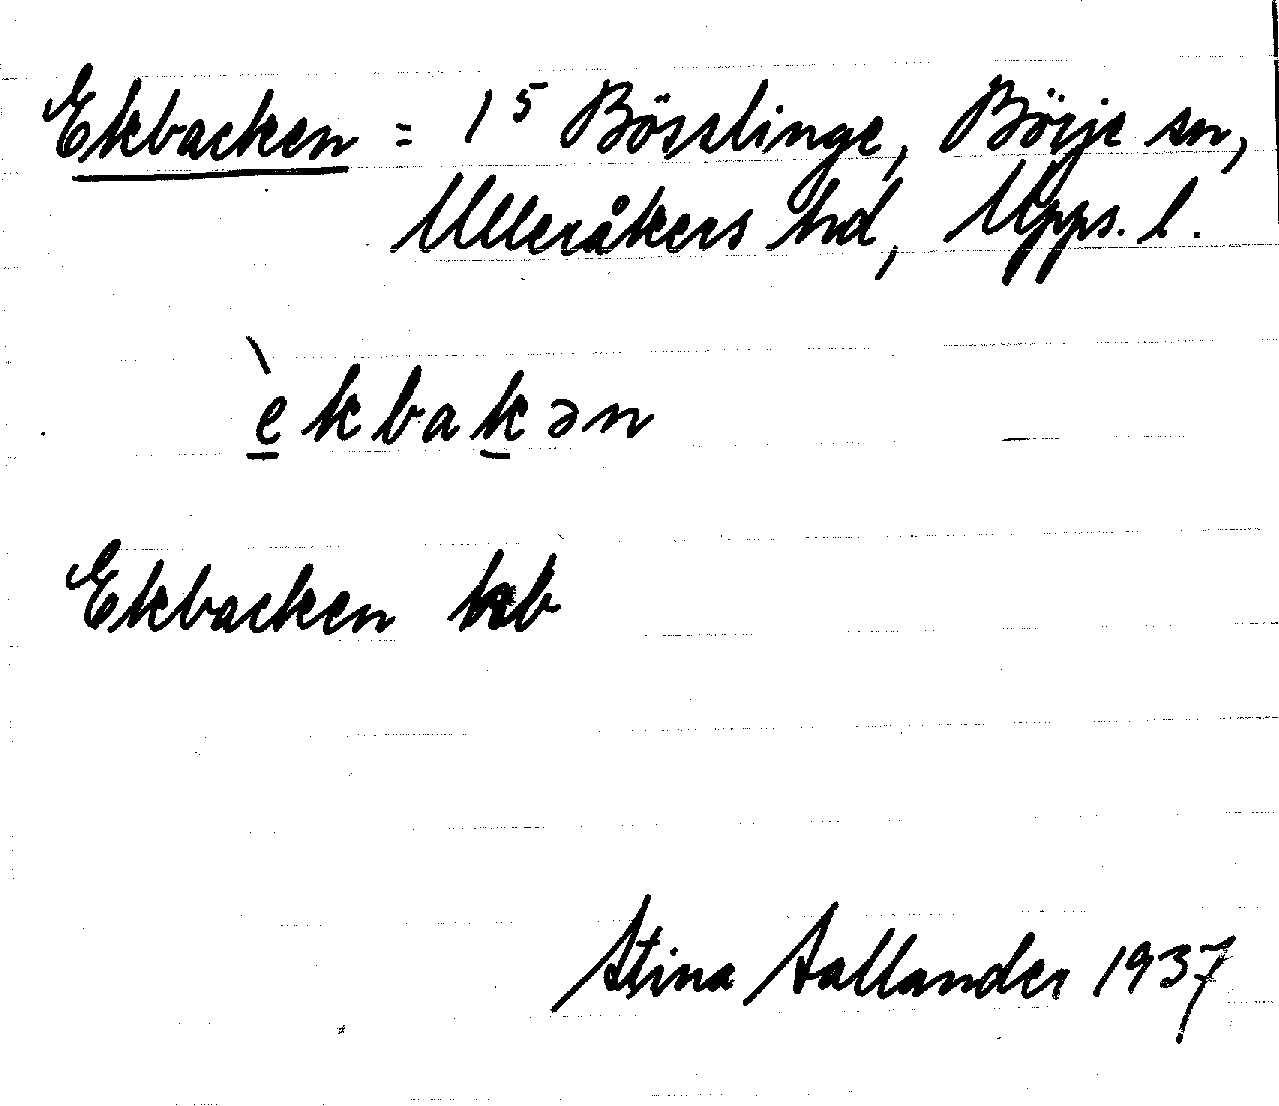 Ekbacken = 1⁵ Bösslinge, Börje sn,
Ulleråkers hd, Upps. l.
`ekbakən
Ekbacken kb
Stina Sallander 1937